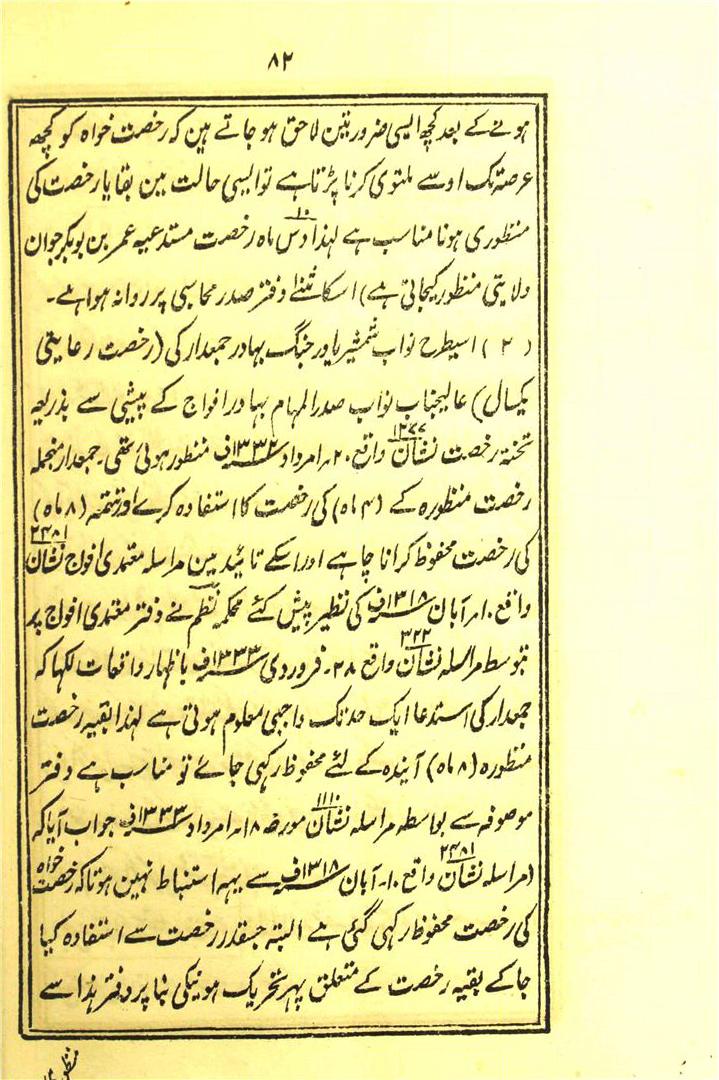 ۸۲
ہونے کے بعد کچھ ایسی ضرورتین لاحق ہو جاتے ہین کہ رخصت خواہ کو کچھ
عرصہ تک اوسے ملتوی کرنا پڑتا ہے تو ایسی حالت مین بقایا رخصت کی
منظوری ہونا مناسب ہے لہذا دس ۱۰ ماہ رخصت مستدعیہ عمر بن بوبکر جوان
ولایتی منظور کیجاتی ہے) اسکا مثنے دفتر صدر محاسبی پر روانہ ہوا ہے۔
(۲) اسیطرح نواب شمشیر یاور جنگ بہادر جمعدار کی (رخصت رعایتی
یکسال) عالیجناب نواب صدر المہام بہادر افواج کے پیشی سے بذریعہ
تختہ رخصت نشان ۱۲۷۷ واقع ۲۰ ؍ امرداد ۱۳۳۲ف منظور ہوئی تھی۔ جمعدار منجملہ
رخصت منظورہ کے (۴ ماہ) کی رخصت کا استفادہ کرے اور تتمہ (۸ ماہ)
کی رخصت محفوظ کرانا چاہے اور اسکے تائید مین مراسلہ معتمدی افواج نشان ۲۴۸۱
واقع ۱۰ ؍ آبان ۱۳۱۸ف کی نظیر پیش کئے محکمہ نظم نے دفتر معتمدی افواج پر
بتوسط مراسلہ نشان ۳۲۲ واقع ۲۸۔ فروردی ۱۳۳۳ف باظہار واقعات لکہا کہ
جمعدار کی استدعا ایک حد تک واجبی معلوم ہوتی ہے لہذا بقیہ رخصت
منظورہ (۸ ماہ) آیندہ کے لئے محفوظ رکہی جائے تو مناسب ہے دفتر
موصوفہ سے بواسطہ مراسلہ نشان ۱۱۱۰ مورخہ ۱۸ ؍ امرداد ۱۳۳۳ف جواب آیا کہ
(مراسلہ نشان ۲۴۸۱ واقع ۱۰۔ آبان ۱۳۱۸ف سے یہہ استنباط نہین ہوتا کہ رخصت خواہ
کی رخصت محفوظ رکہی گئی ہے البتہ جسقدر رخصت سے استفادہ کیا
جا کے بقیہ رخصت کے متعلق پہر تحریک ہونیکی بنا پر دفتر ہذا سے